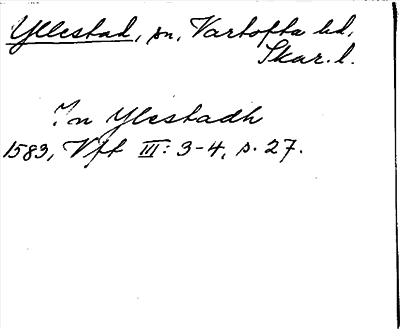 Yllestad, sn, Vartofta hd,
Skar. l.
I/n Ylestadh
1583, Vft III: 3-4, s. 27.